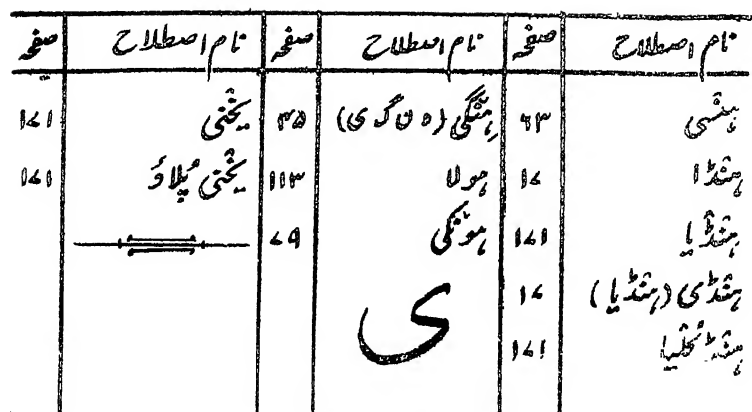 نام اصطلاح صفحہ نام اصطلاح صفحہ نام اصطلاح صفحہ
ہنسی ۶۳ ہِنگی (ہ ن گ ی) ۳۵ یخنی ۱۷۱
ہنڈا ۱۷ ہولا ۱۱۳ یخنی پُلاؤ ۱۷۱
ہنڈیا ۱۷۱ ہونگی ۷۹
ہنڈی (ہنڈیا) ۱۷ ی
ہنڈکُلیا ۱۷۱